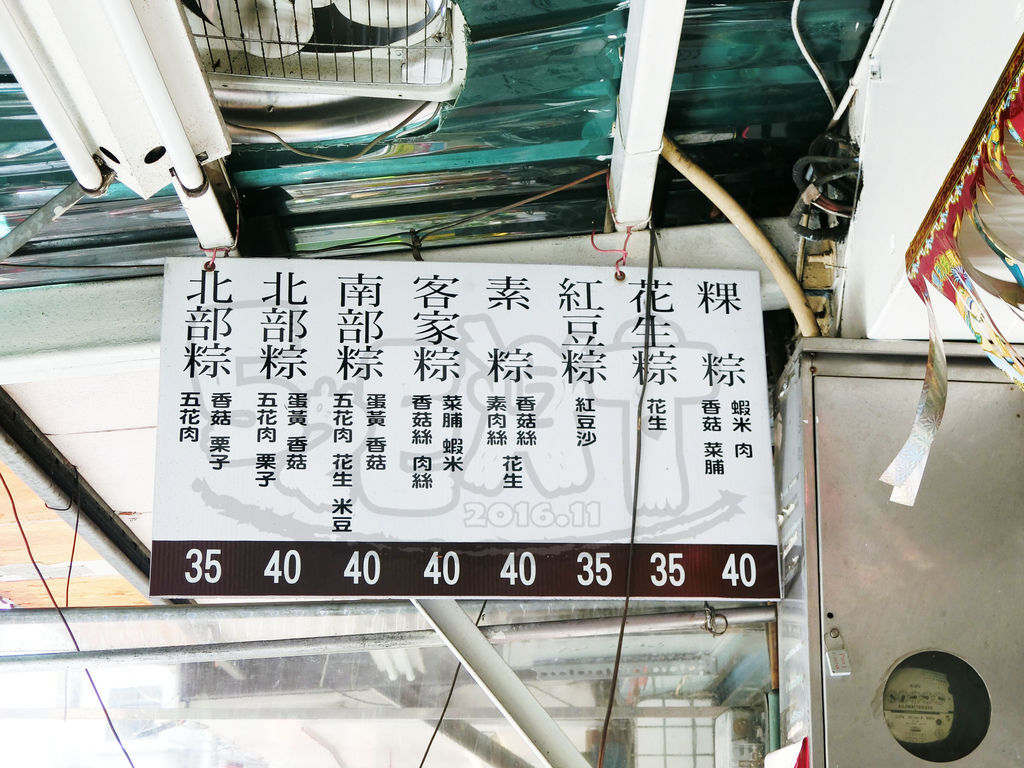 北部粽
香菇 栗子
五花肉
35
北部粽
蛋黃 香菇
五花肉 栗子
40
南部粽
蛋黃 香菇
五花肉 花生 米豆
40
客家粽
菜脯 蝦米
香菇絲 肉絲
40
素粽
香菇絲 花生
素肉絲
40
紅豆粽
紅豆沙
35
花生粽
花生
35
粿粽
蝦米 肉
香菇 菜脯
40
2016.11